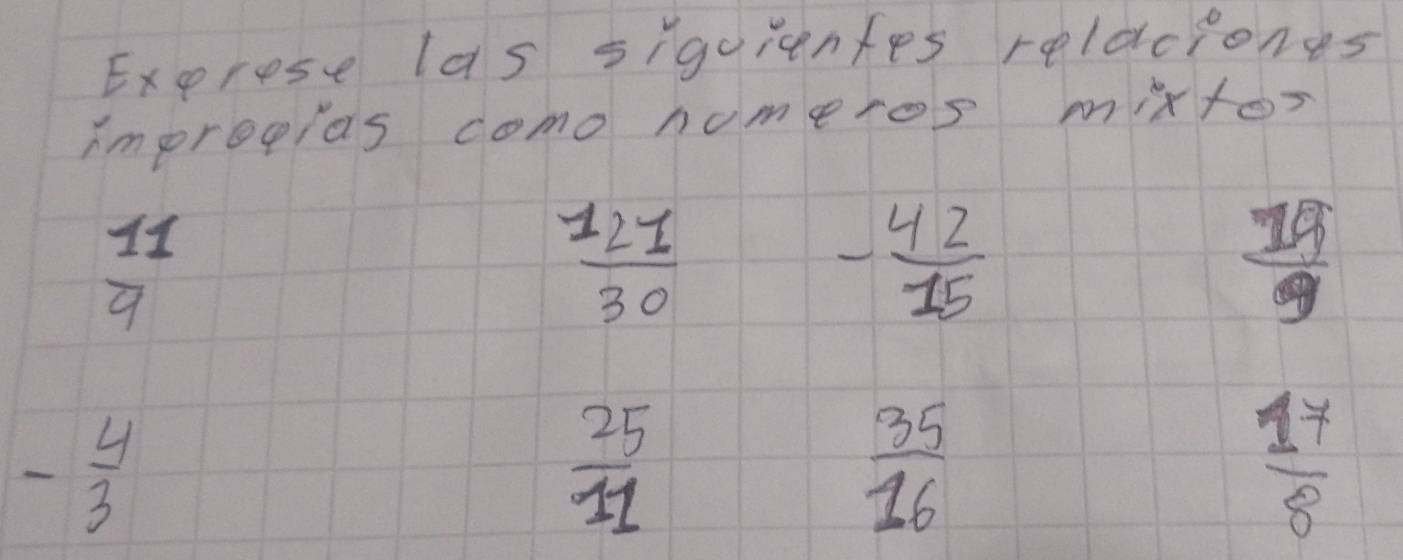 Exprese las siguientes relaciones
impropias como numeros mixtos
11/9 121/30 -42/15 19/9
-4/3 25/11 35/16 17/8